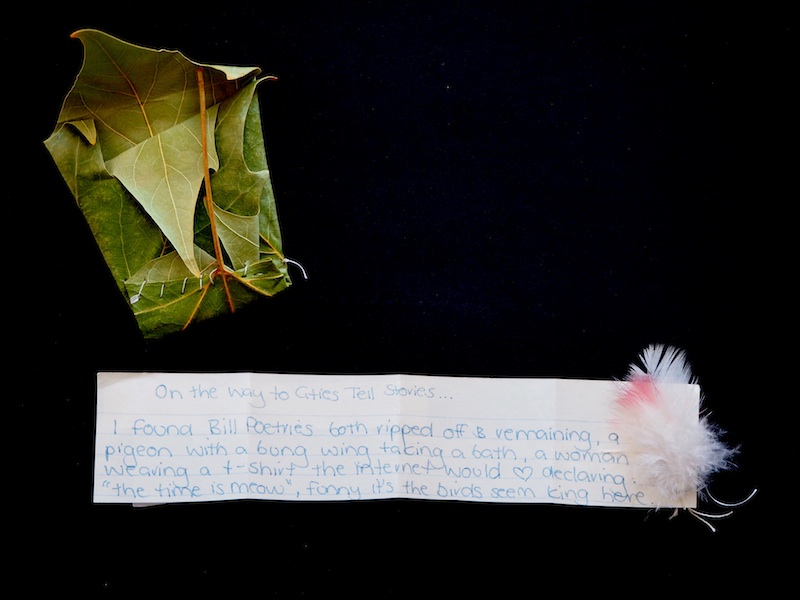 On the way to Cities Tell Stories...
I found Bill Poetries both ripped off & remaining, a
pigeon with a bung wing taking a bath, a woman
wearing a t-shirt the internet would ♡ declaring
"the time is meow", fonny it's the birds seem king here.